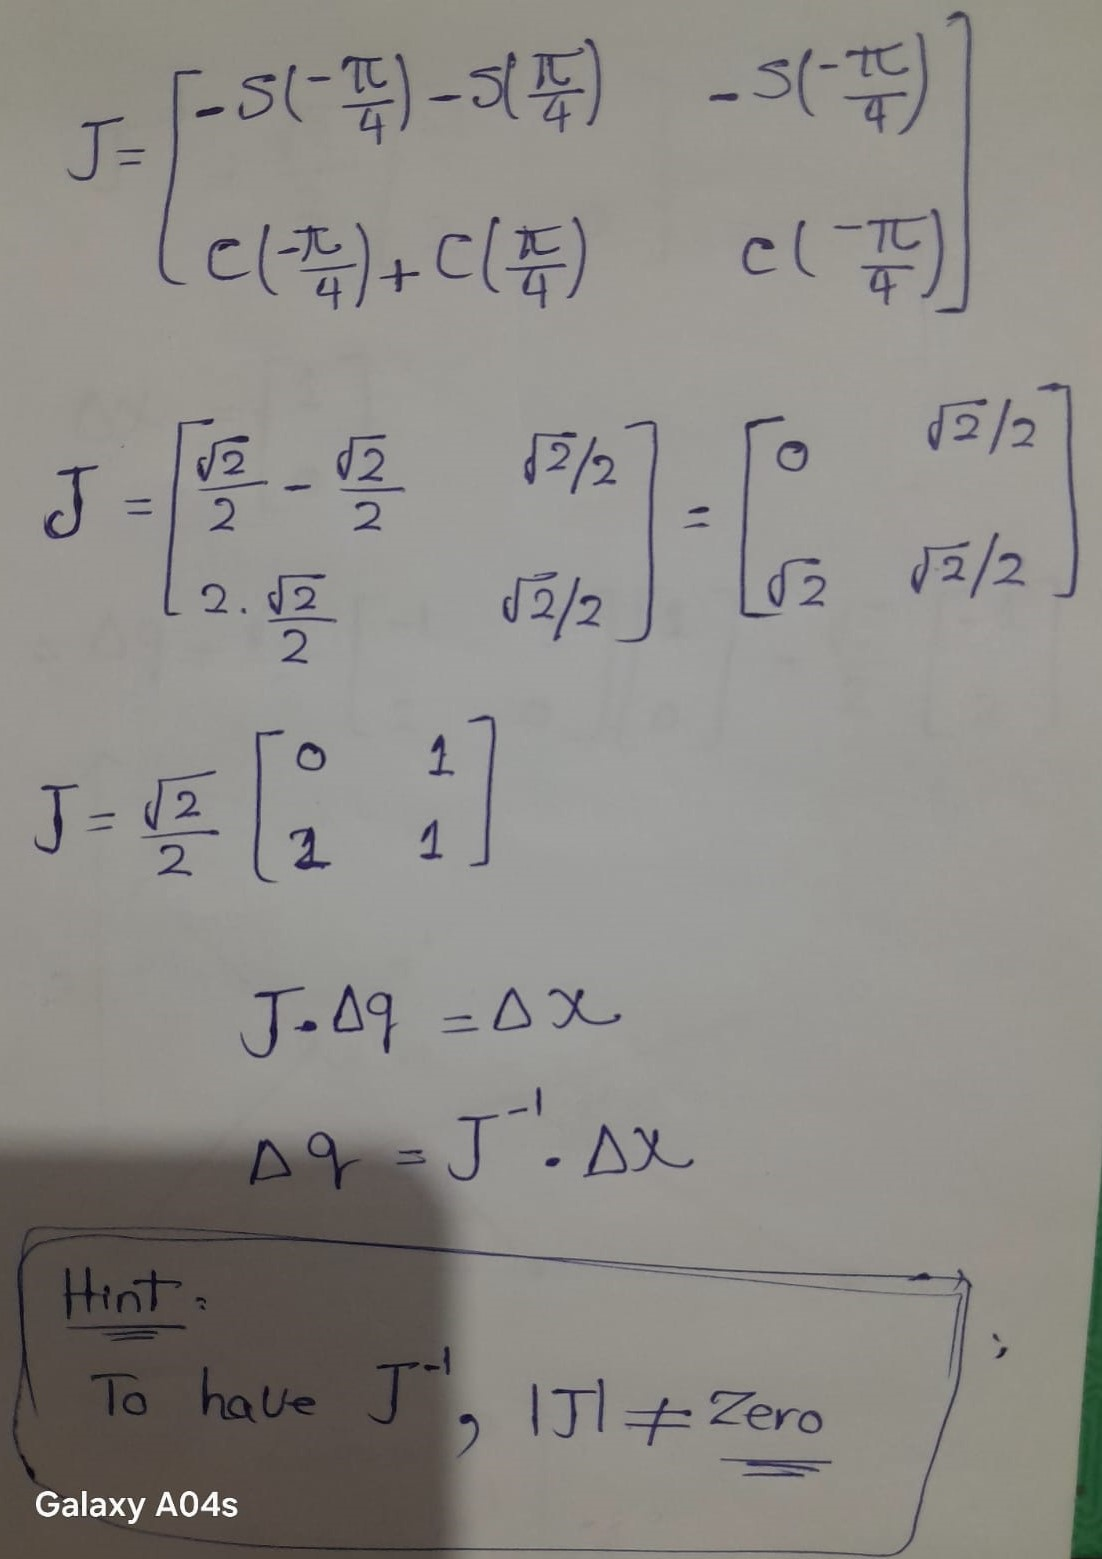 J = [ -S(-π/4) - S(π/4)   -S(-π/4)
C(-π/4) + C(π/4)   C(-π/4) ]
J = [ √2/2 - √2/2   √2/2
2.√2/2   √2/2 ] = [ 0   √2/2
√2   √2/2 ]
J = √2/2 [ 0   1
2   1 ]
J.Δq = Δx
Δq = J⁻¹ . Δx
Hint:
To have J⁻¹, |J| ≠ Zero
Galaxy A04s